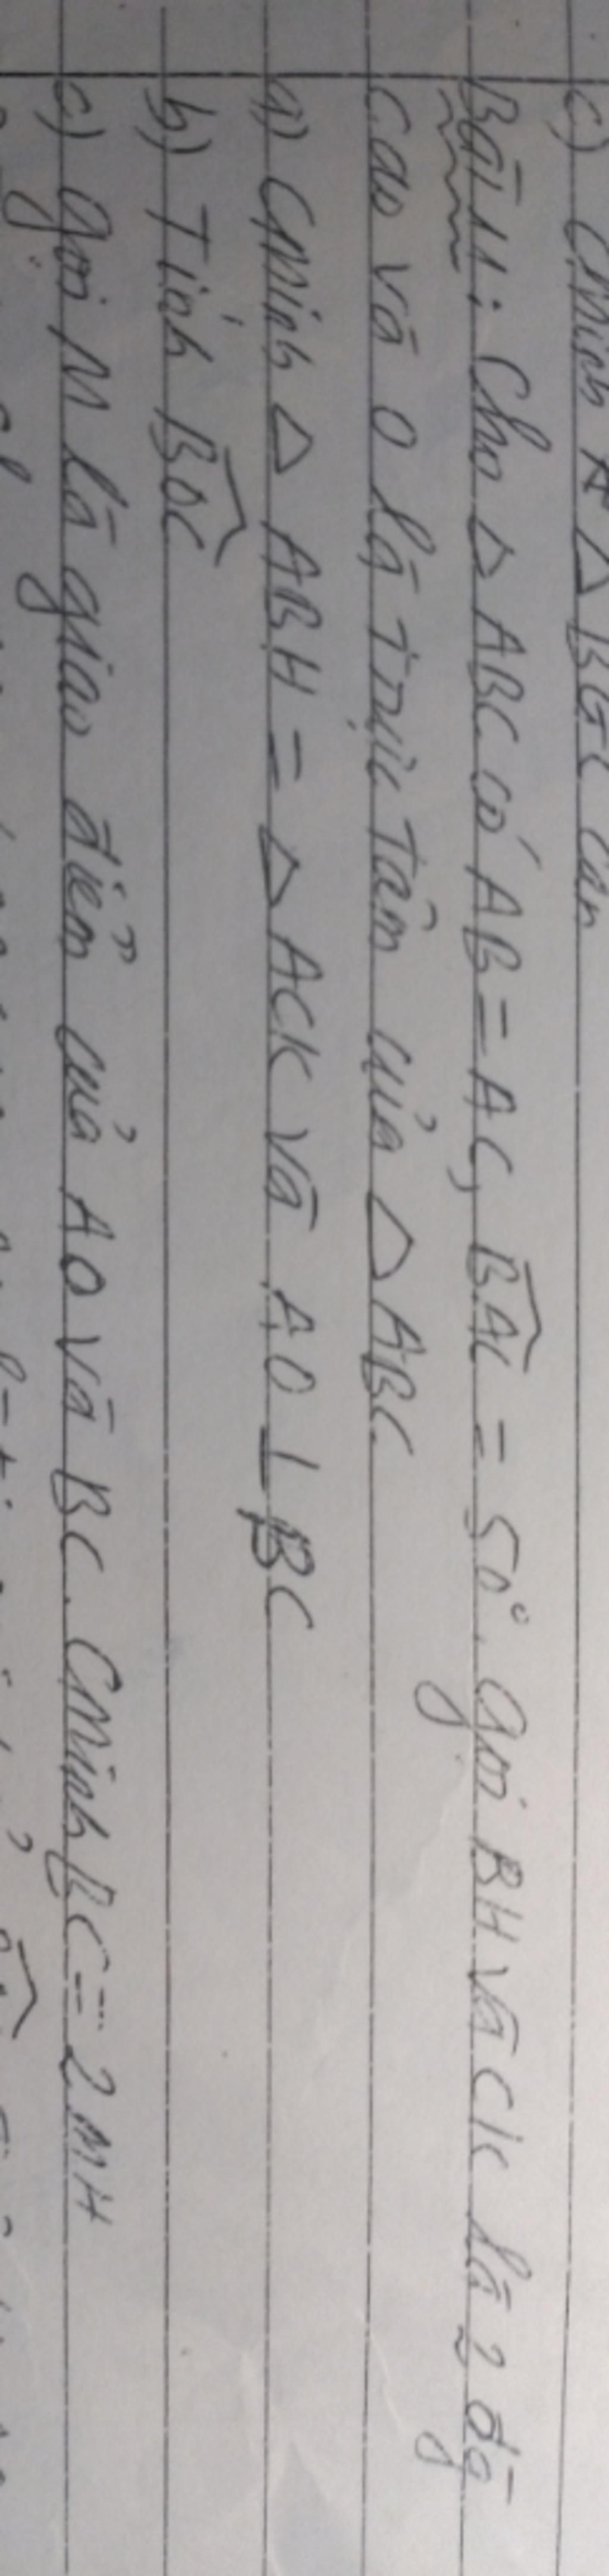 c) Cminh Δ BGC cân
Bài 11: Cho Δ ABC có AB = AC, BAC = 50°. Gọi BH và CK là 2 đg
cao và O là trực tâm của Δ ABC
a) Cminh Δ ABH = Δ ACK và AO ⊥ BC
b) Tính BOC
c) Gọi M là giao điểm của AO và BC. Cminh BC = 2MH